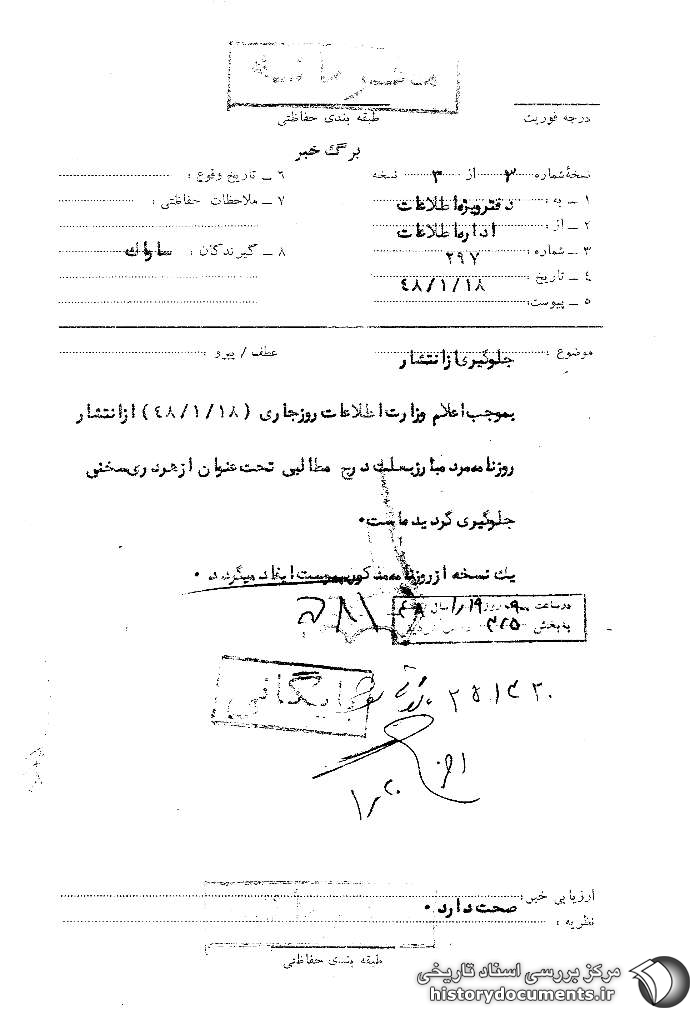 طبقه بندی حفاظتی
درجه فوریت
برگ خبر
نسخهٔ شماره ۳ از ۳ نسخه
۱ ـ به : دفتر ویژه اطلاعات
۲ ـ از : اداره اطلاعات
۳ ـ شماره : ۲۹۷
۴ ـ تاریخ : ۴۸/۱/۱۸
۵ ـ پیوست:
۶ ـ تاریخ وقوع :
۷ ـ ملاحظات حفاظتی :
۸ ـ گیرندگان : ساواک
موضوع : جلوگیری از انتشار
عطف / پیرو :
بموجب اعلام وزارت اطلاعات روز جاری (۴۸/۱/۱۸) از انتشار
روزنامه مرد مبارز بعلت درج مطالبی تحت عنوان از هر دری سخنی
جلوگیری گردیده است.
یک نسخه از روزنامه مذکور بپیوست ایفاد میگردد.
در ساعت روز ۱۹/۱ سال
به بخش ۳۲۵
بایگانی
۲۵۱۴۳۰
ارزیابی خبر: صحت دارد.
نظریه :
طبقه بندی حفاظتی
مرکز بررسی اسناد تاریخی
historydocuments.ir